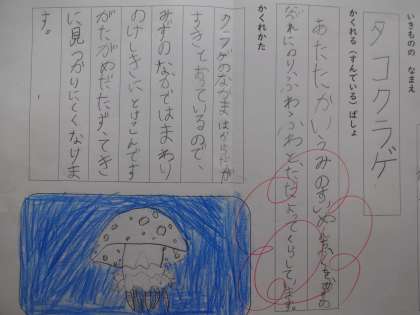 いきものの なまえ
タコクラゲ
かくれる(すんでいる)ばしょ
あたたかいうみのすいめん
ながれにのり、ふわふわとただよってくらしています。
かくれかた
クラゲのなかまはからだが
すきとおっているので、
みずのなかではまわり
のけしきにとけこんです
がたがめだたず、てき
に見つかりにくくなりま
す。